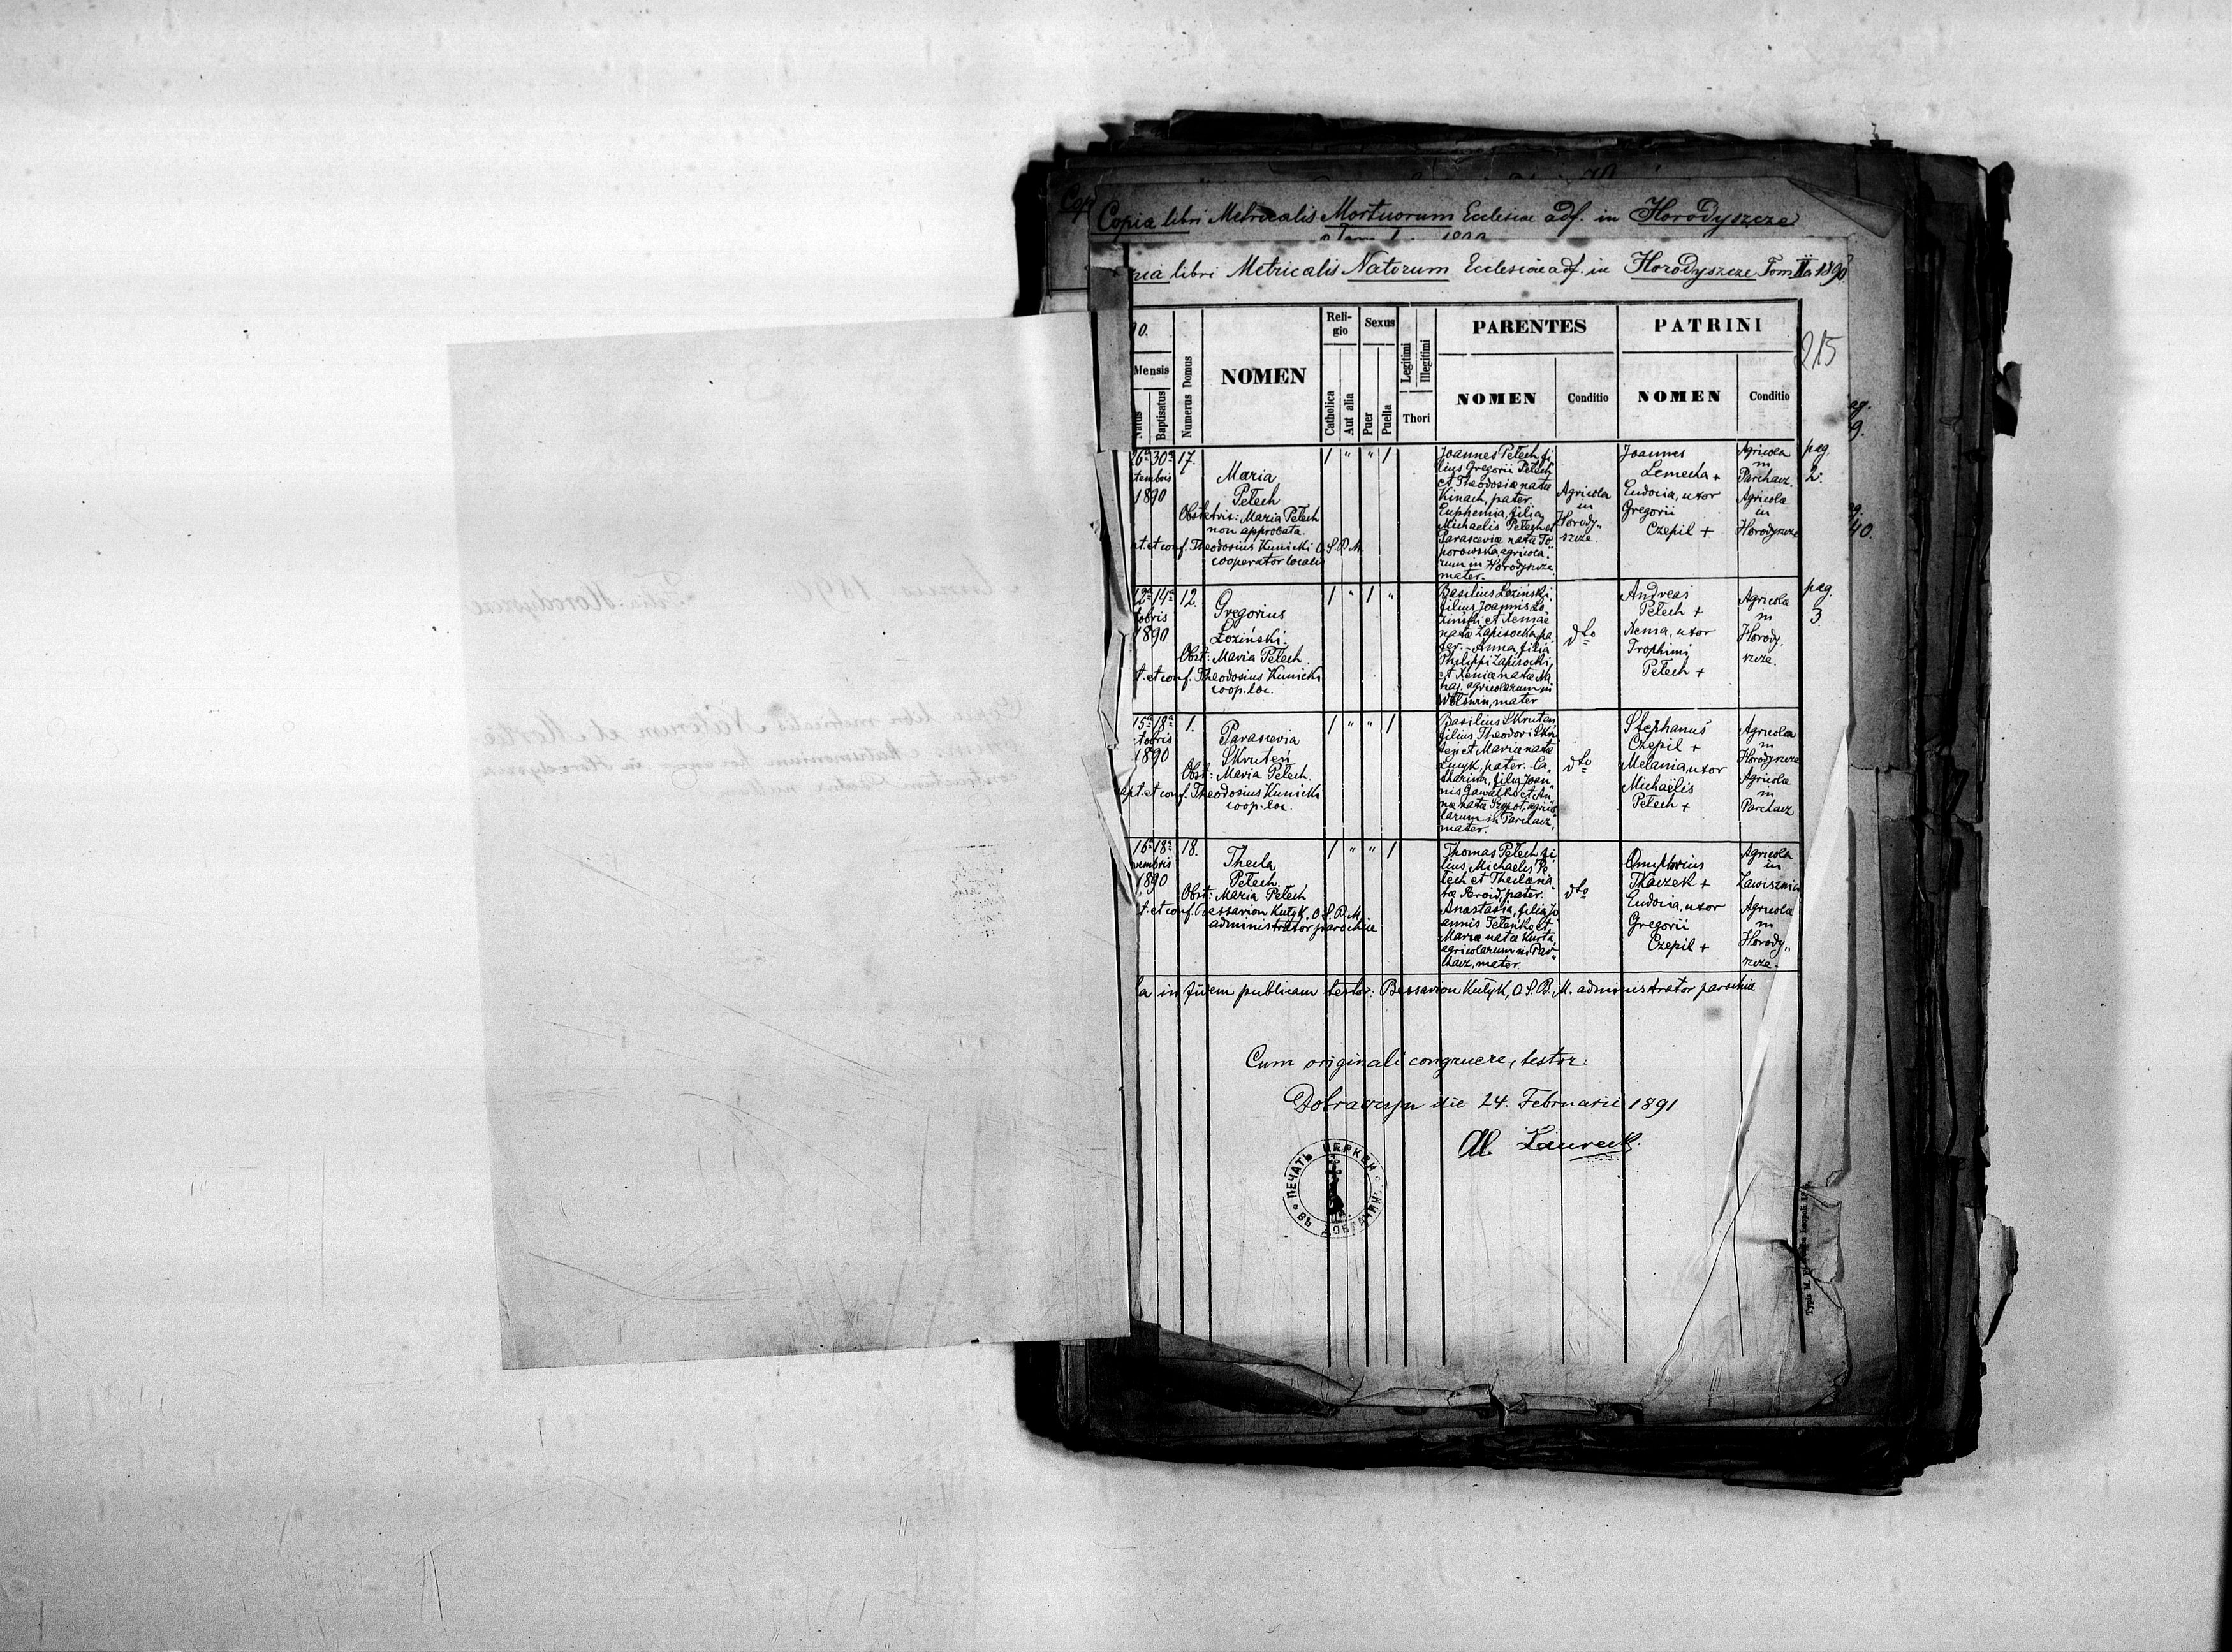 Copia libri Metricalis Mortuorum Ecclesiae adf. in Horodyszcze
pia libri Metricalis Natorum Ecclesiae adf. in Horodyszcze Tom II a 1890
215
90.
Mensis
Natus
Baptisatus
Numerus Domus
NOMEN
Reli-
gio
Catholica
Aut alia
Sexus
Puer
Puella
Legitimi
Illegitimi
Thori
PARENTES
NOMEN
Conditio
PATRINI
NOMEN
Conditio
26ª 30ª 17.
tembris
1890
Maria
Pełech
Obstetrix: Maria Pełech
non approbata.
pt. et conf. Theodosius Kunicki O.S.B.M.
cooperator localis
1 " " 1
Joannes Pełech fi
lius Gregorii Pełech
et Theodosiae natae
Kinach, pater.
Euphemia, filia
Michaelis Pełech et
Parasceviae natae To
porowska, agricola
rum in Horodyszcze
mater.
Agricola
in
Horody„
szcze.
Joannes
Lemecha +
Eudocia, uxor
Gregorii
Czepil +
Agricola
in
Parchacz.
Agricola
in
Horodyszcze
pag.
2.
12ª 14ª 12.
tobris
1890
Gregorius
Łoziński.
Obst: Maria Pełech.
t. et conf. Theodosius Kunicki
coop. loc.
1 " 1 "
Basilius Łoziński,
filius Joannis Ło
ziński et Xeniae
natae Zapisocka pa
ter. Anna, filia
Philippi Zapisocki,
et Xeniae natae Ma
haj, agricolarum in
Wołswin, mater
dto
Andreas
Pełech +
Xenia, uxor
Trophimi
Pełech +
Agricola
in
Horody.
szcze.
pag.
3.
15ª 18ª 1.
tobris
1890
Parascevia
Skruteń
Obst: Maria Pełech.
apt. et conf. Theodosius Kunicki
coop. loc.
1 " " 1
Basilius Skruteń,
filius Theodori Skru
teń et Mariae natae
Lucyk, pater. Ca
tharina, filia Joan
nis Gawałko et An
nae natae Szpot, agrico
larum in Parchacz,
mater.
dto
Stephanus
Czepil +
Melania, uxor
Michaëlis
Pełech +
Agricola
in
Horodyszcze
Agricola
in
Parchacz
16ª 18ª 18.
vembris
1890
Thecla
Pełech.
Obst: Maria Pełech
t. et conf. Bessarion Kułyk, O.S.B.M.
administrator parochiae
1 " " 1
Thomas Pełech, fi
lius Michaelis Pe
łech et Theclae na
tae Heroid, pater.
Anastasia, filia Jo
annis Teleńko et
Mariae natae Kurta
agricolarum in Par„
chacz, mater.
dto
Onuphrius
Tkaczek +
Eudocia, uxor
Gregorii
Czepil +
Agricola
in
Zawisznia
Agricola
in
Horody„
szcze.
ta in fidem publicam testor: Bessarion Kułyk, O.S.B.M. administrator parochiae
Cum originali congruere, testor:
Dobraczyn die 24. Februarii 1891
ПЕЧАТЬ ЦЕРКВИ
ВЪ ДОБРАЧИНѢ